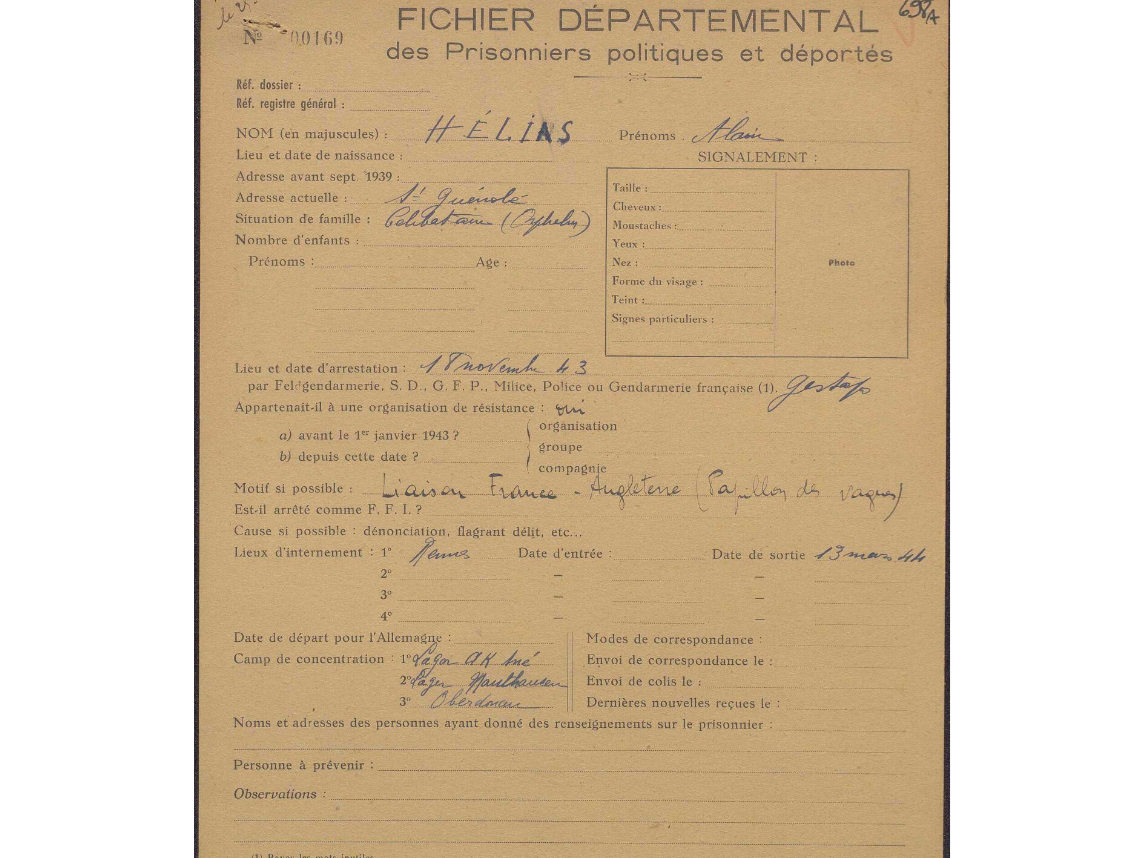 FICHIER DÉPARTEMENTAL
698A
Nº 00169
des Prisonniers politiques et déportés
Réf. dossier :
Réf. registre général :
NOM (en majuscules) : HÉLIAS Prénoms : Alain
Lieu et date de naissance : SIGNALEMENT :
Adresse avant sept. 1939 :
Adresse actuelle : St Guénolé
Situation de famille : Célibataire (Orphelin)
Nombre d'enfants :
Prénoms : Age :
Taille :
Cheveux :
Moustaches :
Yeux :
Nez : Photo
Forme du visage :
Teint :
Signes particuliers :
Lieu et date d'arrestation : 18 novembre 43
par Feldgendarmerie, S. D., G. F. P., Milice, Police ou Gendarmerie française (1). Gestapo
Appartenait-il à une organisation de résistance : oui
a) avant le 1er janvier 1943 ? organisation
groupe
b) depuis cette date ? compagnie
Motif si possible : Liaison France - Angleterre (Papillon des vagues)
Est-il arrêté comme F. F. I. ?
Cause si possible : dénonciation, flagrant délit, etc...
Lieux d'internement : 1º Rennes Date d'entrée : Date de sortie 13 mars 44
2º — —
3º — —
4º — —
Date de départ pour l'Allemagne : Modes de correspondance :
Camp de concentration : 1º Lager Envoi de correspondance le :
2º Lager Mauthausen Envoi de colis le :
3º Oberdonau Dernières nouvelles reçues le :
Noms et adresses des personnes ayant donné des renseignements sur le prisonnier :
Personne à prévenir :
Observations :
(1) Rayer les mots inutiles.